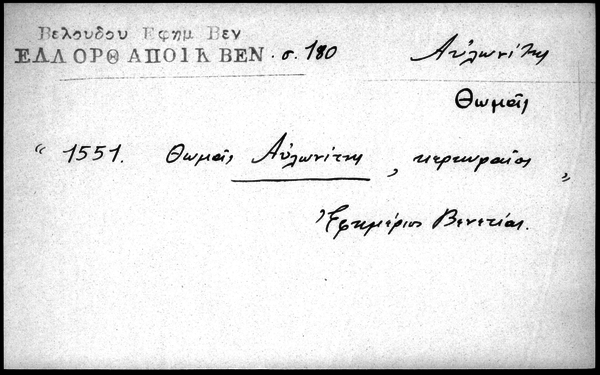 Βελουδου Εφημ Βεν
ΕΛΛ ΟΡΘ ΑΠΟΙΚ ΒΕΝ · σ. 180
Αὐλωνίτης
Θωμᾶς
“ 1551. Θωμᾶς Αὐλωνίτης, κερκυραῖος „
Ἐφημέριος Βενετίας.